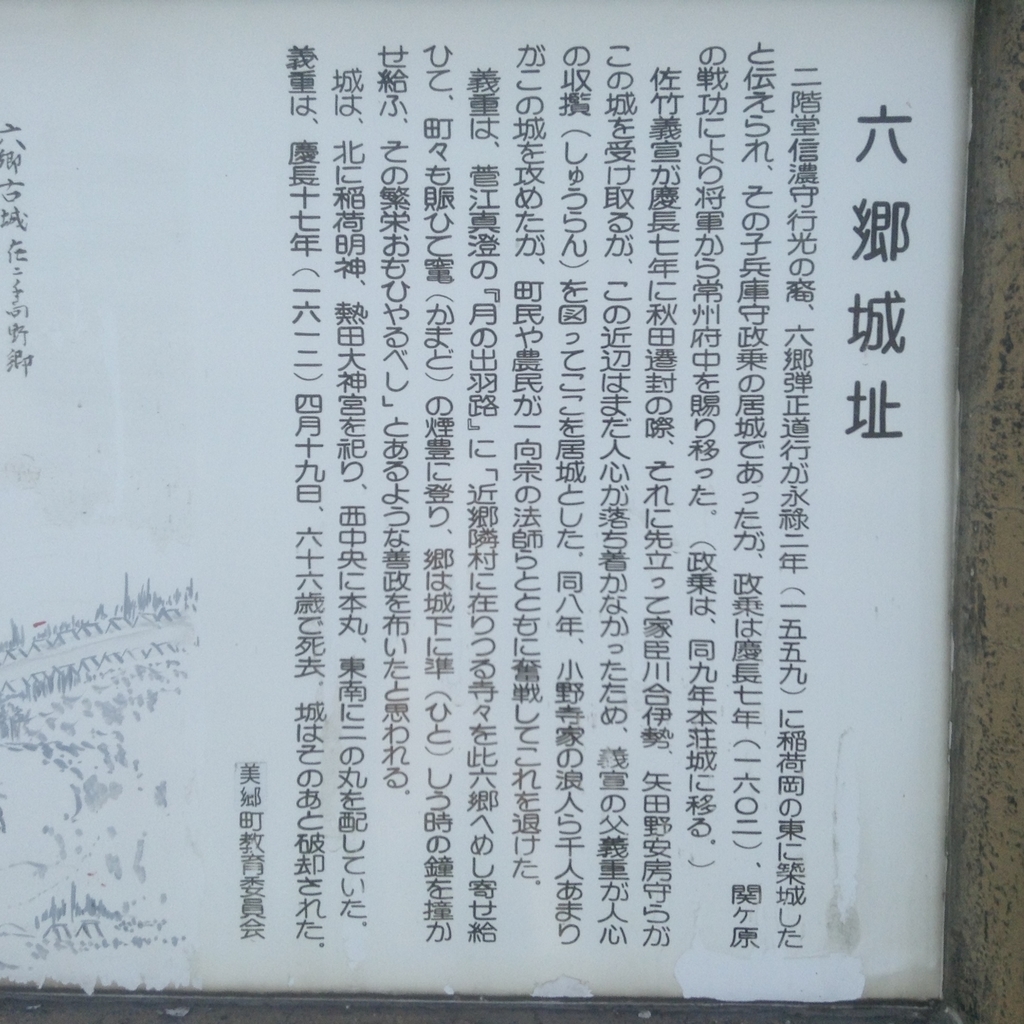 六郷城址
二階堂信濃守行光の裔、六郷弾正道行が永祿二年（一五五九）に稲荷岡の東に築城した
と伝えられ、その子兵庫守政乗の居城であったが、政乗は慶長七年（一六〇二）、関ヶ原
の戦功により将軍から常州府中を賜り移った。（政乗は、同九年本荘城に移る。）
佐竹義宣が慶長七年に秋田遷封の際、それに先立って家臣川合伊勢、矢田野安房守らが
この城を受け取るが、この近辺はまだ人心が落ち着かなかったため、義宣の父義重が人心
の収攬（しゅうらん）を図ってここを居城とした。同八年、小野寺家の浪人ら千人あまり
がこの城を攻めたが、町民や農民が一向宗の法師らとともに奮戦してこれを退けた。
義重は、菅江真澄の『月の出羽路』に「近郷隣村に在りつる寺々を此六郷へめし寄せ給
ひて、町々も賑ひて竃（かまど）の煙豊に登り、郷は城下に準（ひと）しう時の鐘を撞か
せ給ふ、その繁栄おもひやるべし」とあるような善政を布いたと思われる。
城は、北に稲荷明神、熱田大神宮を祀り、西中央に本丸、東南に二の丸を配していた。
義重は、慶長十七年（一六一二）四月十九日、六十六歳で死去、城はそのあと破却された。
美郷町教育委員会
六郷古城在二手向野郷